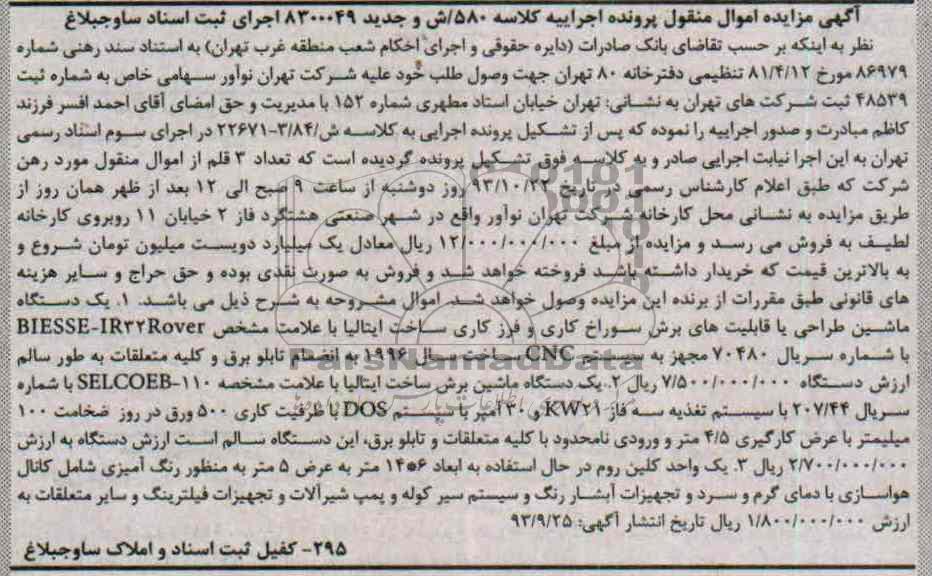 آگهی مزایده اموال منقول پرونده اجراییه کلاسه ۵۸۰/ش و جدید ۸۳۰۰۰۴۹ اجرای ثبت اسناد ساوجبلاغ
نظر به اینکه بر حسب تقاضای بانک صادرات (دایره حقوقی و اجرای احکام شعب منطقه غرب تهران) به استناد سند رهنی شماره
۸۶۹۷۹ مورخ ۸۱/۴/۱۲ تنظیمی دفترخانه ۸۰ تهران جهت وصول طلب خود علیه شرکت تهران نوآور سهامی خاص به شماره ثبت
۴۸۵۳۹ ثبت شرکت های تهران به نشانی: تهران خیابان استاد مطهری شماره ۱۵۲ با مدیریت و حق امضای آقای احمد افسر فرزند
کاظم مبادرت و صدور اجراییه را نموده که پس از تشکیل پرونده اجرایی به کلاسه ش/۳/۸۴-۲۲۶۷۱ در اجرای سوم اسناد رسمی
تهران به این اجرا نیابت اجرایی صادر و به کلاسه فوق تشکیل پرونده گردیده است که تعداد ۳ قلم از اموال منقول مورد رهن
شرکت که طبق اعلام کارشناس رسمی در تاریخ ۹۳/۱۰/۲۲ روز دوشنبه از ساعت ۹ صبح الی ۱۲ بعد از ظهر همان روز از
طریق مزایده به نشانی محل کارخانه شرکت تهران نوآور واقع در شهر صنعتی هشتگرد فاز ۲ خیابان ۱۱ روبروی کارخانه
لطیف به فروش می رسد و مزایده از مبلغ ۱۲/۰۰۰/۰۰۰/۰۰۰ ریال معادل یک میلیارد دویست میلیون تومان شروع و
به بالاترین قیمت که خریدار داشته باشد فروخته خواهد شد و فروش به صورت نقدی بوده و حق حراج و سایر هزینه
های قانونی طبق مقررات از برنده این مزایده وصول خواهد شد. اموال مشروحه به شرح ذیل می باشد. ۱. یک دستگاه
ماشین طراحی یا قابلیت های برش سوراخ کاری و فرز کاری ساخت ایتالیا با علامت مشخص BIESSE-IR۳۲Rover
با شماره سریال ۷۰۴۸۰ مجهز به سیستم CNC ساخت سال ۱۹۹۶ به انضمام تابلو برق و کلیه متعلقات به طور سالم
ارزش دستگاه ۷/۵۰۰/۰۰۰/۰۰۰ ریال ۲. یک دستگاه ماشین برش ساخت ایتالیا با علامت مشخصه SELCOEB-۱۱۰ با شماره
سریال ۲۰۷/۴۴ با سیستم تغذیه سه فاز KW۲۱ و ۳۰ آمپر با سیستم DOS با ظرفیت کاری ۵۰۰ ورق در روز ضخامت ۱۰۰
میلیمتر با عرض کارگیری ۴/۵ متر و ورودی نامحدود با کلیه متعلقات و تابلو برق، این دستگاه سالم است ارزش دستگاه به ارزش
۲/۷۰۰/۰۰۰/۰۰۰ ریال ۳. یک واحد کلین روم در حال استفاده به ابعاد ۶*۱۴ متر به عرض ۵ متر به منظور رنگ آمیزی شامل کانال
هواسازی با دمای گرم و سرد و تجهیزات آبشار رنگ و سیستم سیر کوله و پمپ شیرآلات و تجهیزات فیلترینگ و سایر متعلقات به
ارزش ۱/۸۰۰/۰۰۰/۰۰۰ ریال تاریخ انتشار آگهی: ۹۳/۹/۲۵
۲۹۵- کفیل ثبت اسناد و املاک ساوجبلاغ
ParsNamadData